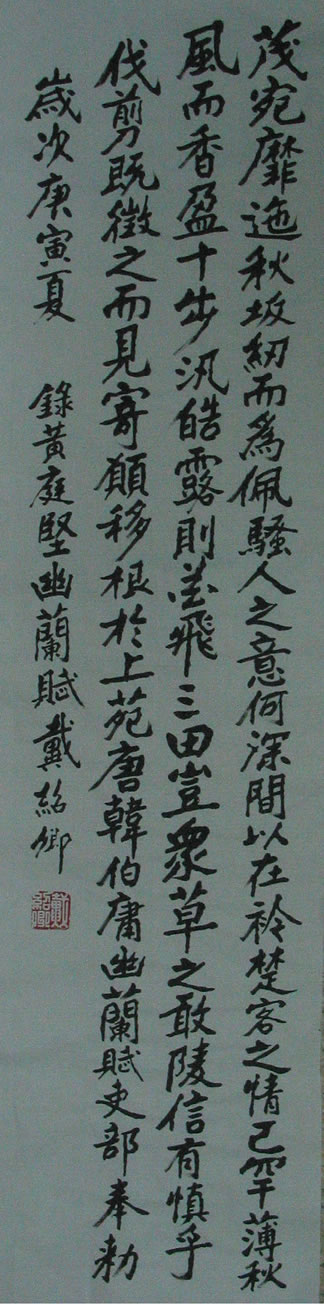 茂宛靡迤秋坂紉而爲佩騷人之意何深間以在衿楚客之情已罕薄秋
風而香盈十步汎皓露則飛三田豈衆草之敢陵信有慎乎
伐剪既徵之而見寄願移根於上苑唐韓伯庸幽蘭賦吏部奉勅
歲次庚寅夏 錄黃庭堅幽蘭賦戴紹卿
戴紹卿